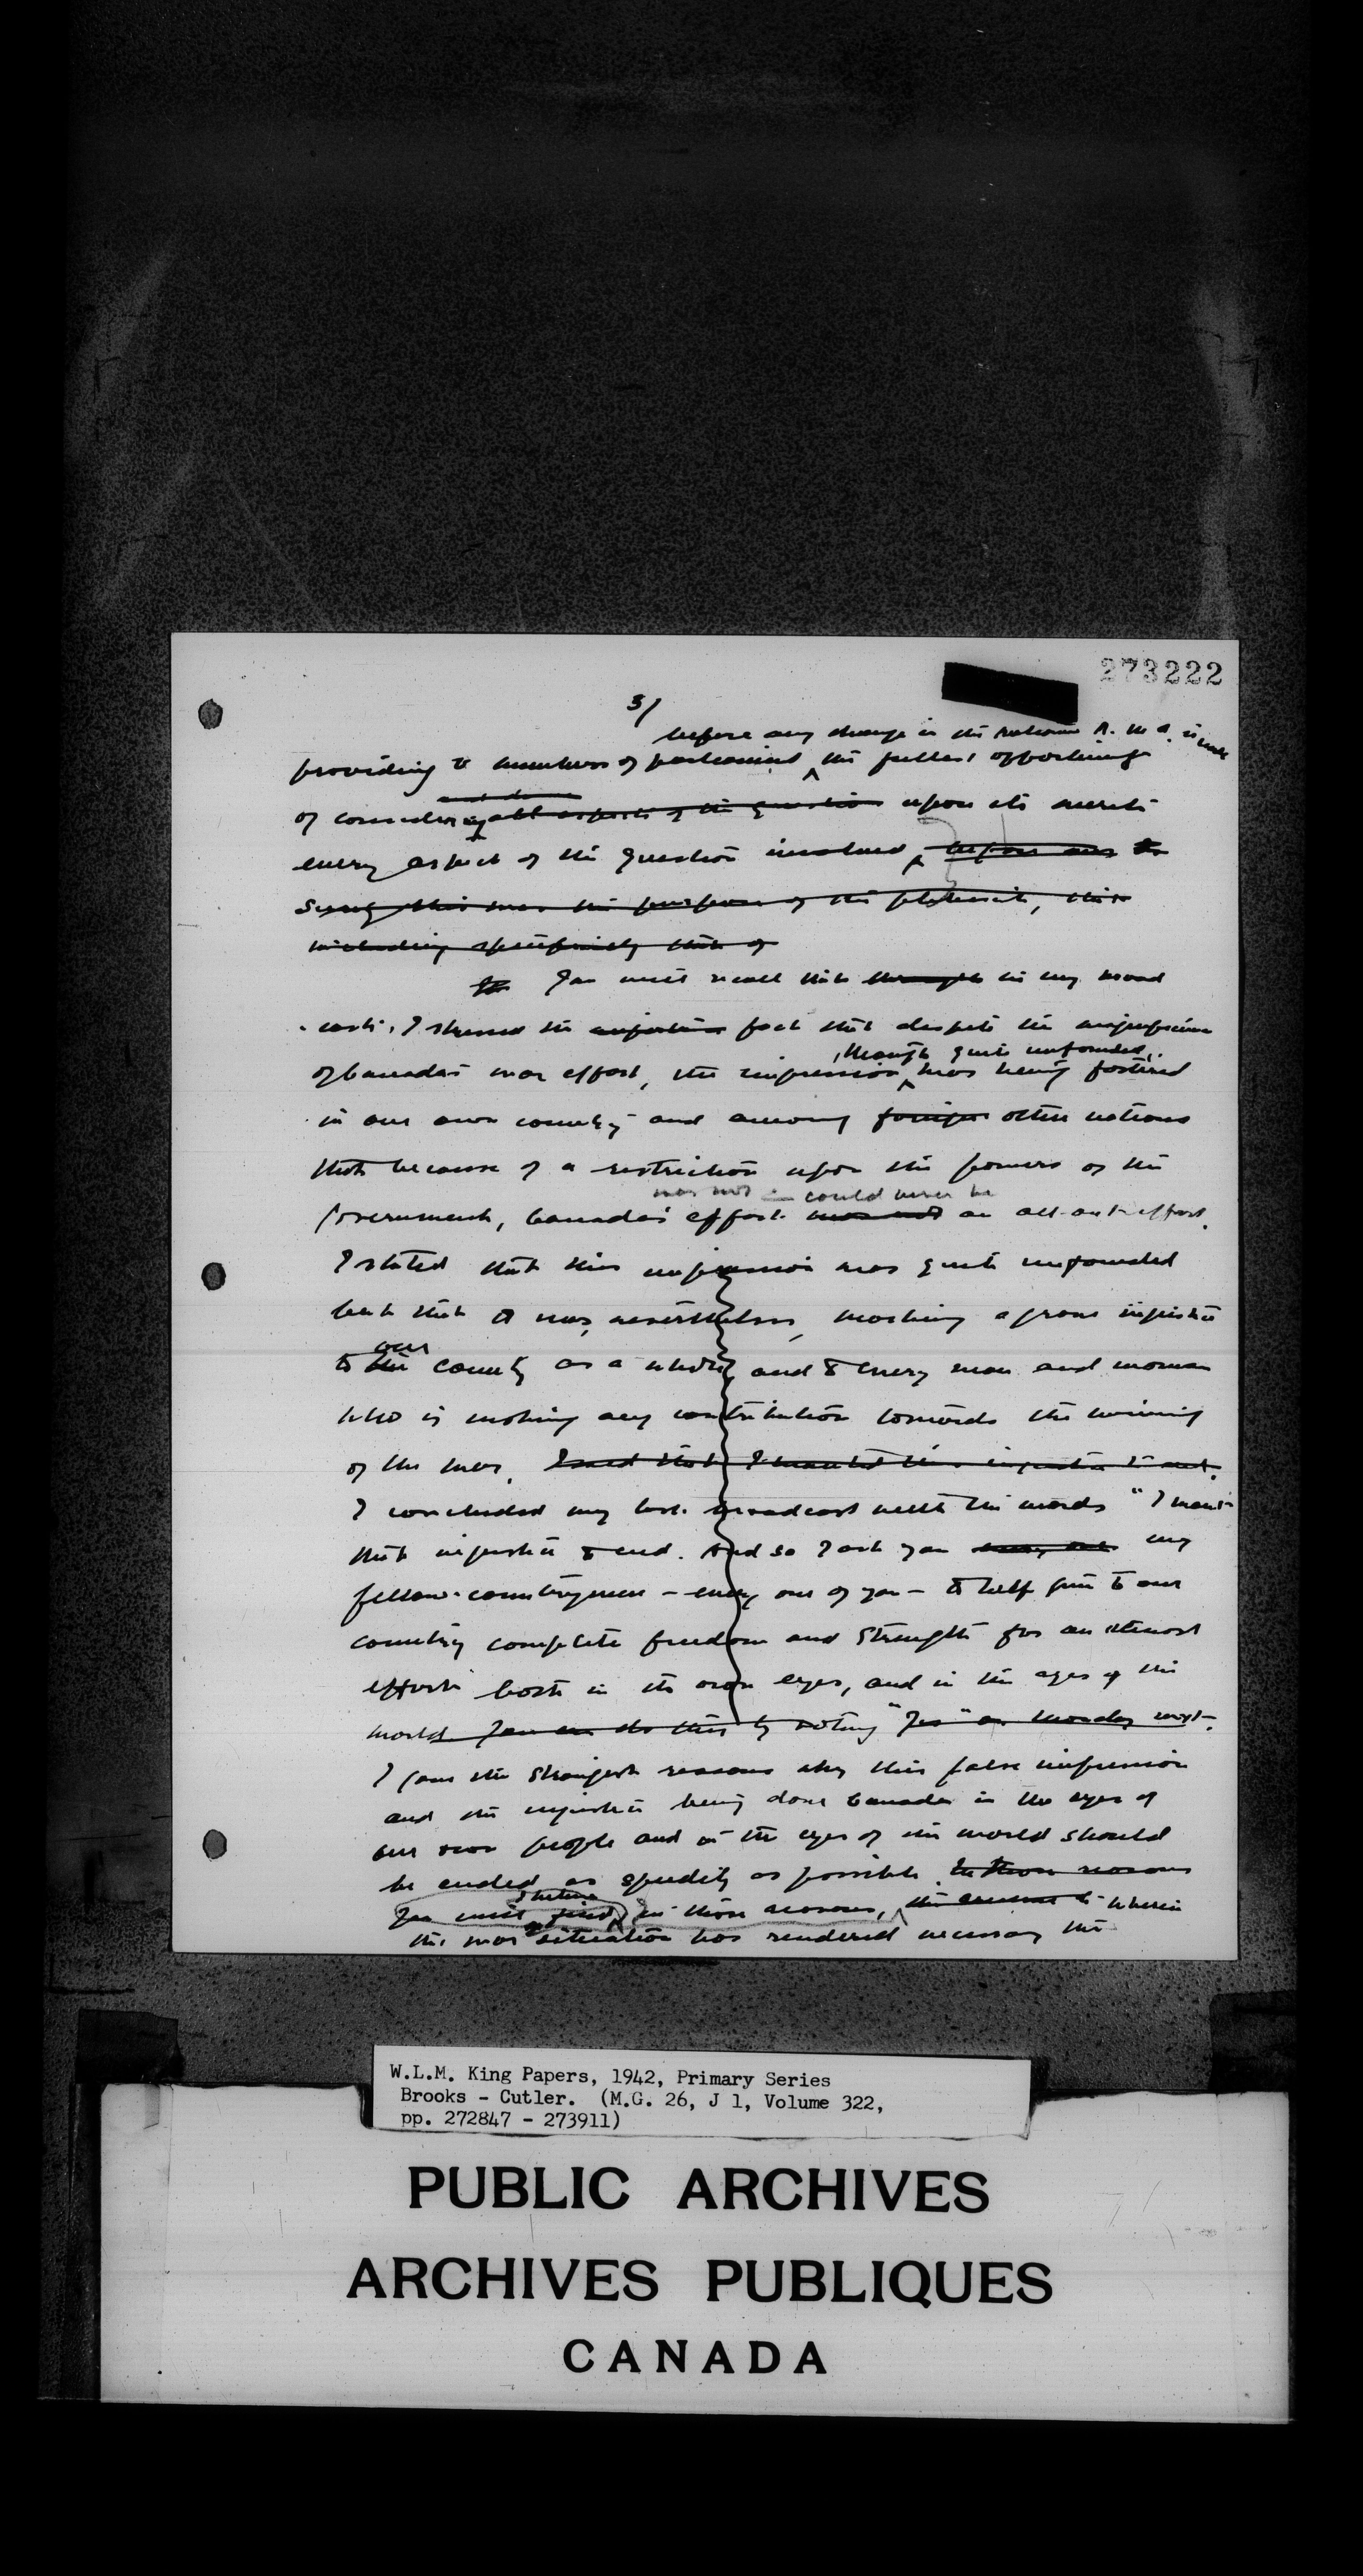 273222
3/
before any change in the National R. M. A. is made
providing to members of parliament the fullest opportunity
of considering all aspects of the question upon its merits
every aspect of the question involved, before any
saying this was the purpose of the plebiscite, this
including specifically that of
You will recall that through in my broad
cast, I stressed the fact that despite the magnificence
though quite unfounded,
of Canada's war effort, the impression was being fostered
in our own country and among foreign other nations
that because of a restriction upon the powers of the
was not could never be
Government, Canada's effort was not an all-out effort.
I stated that this impression was quite unfounded
but that it was, nevertheless, working a grave injustice
our
to the country as a whole, and to every man and woman
who is making any contribution towards the winning
of the war. I said that I wanted this injustice to end.
I concluded my last broadcast with the words "I want
that injustice to end. And so I ask you every one my
fellow-countrymen - every one of you - to help give to our
country complete freedom and strength for an utmost
effort both in its own eyes, and in the eyes of the
world. You can do this by voting "Yes" on Monday next.
I gave the strongest reasons why this false impression
and the injustice being done Canada in the eyes of
our own people and in the eyes of the world should
be ended as speedily as possible. In those reasons
You will find in those reasons, wherein
the war situation has rendered necessary the
W.L.M. King Papers, 1942, Primary Series
Brooks - Cutler. (M.G. 26, J 1, Volume 322,
pp. 272847 - 273911)
PUBLIC ARCHIVES
ARCHIVES PUBLIQUES
CANADA